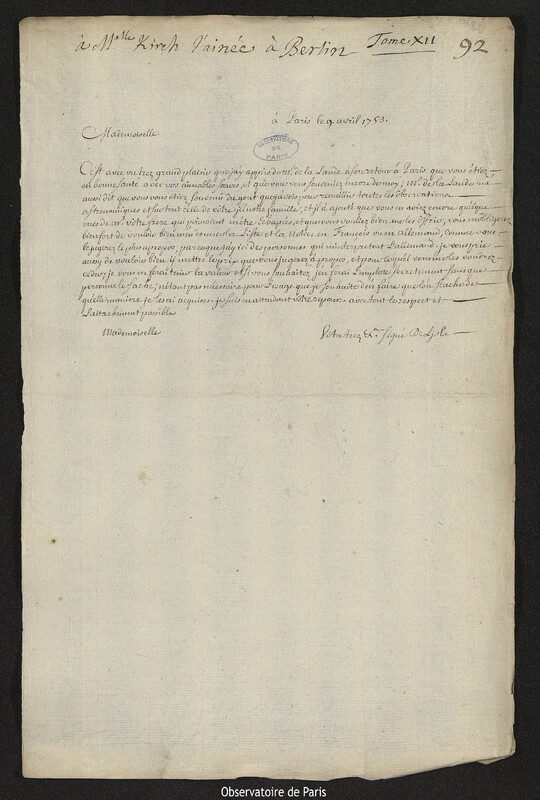 à Melle Kirch l'ainée à Berlin Tome XII 92
à Paris le 9. avril 1753.
Mademoiselle
OBSERVATOIRE DE PARIS
C'est avec un trez grand plaisir que jay appris de mr. de la Lande à son retour à Paris que vous étiez
en bonne santé avec vos aimables sœurs, et que vous vous souveniez encore de moy; Mr. de la Lande m'a
aussi dit que vous vous etiez souvenu du gout que javois pour recueillir toutes les observations
astronomiques et surtout celle de votre illustre famille; et il a ajouté que vous en aviez encore quelques
unes de mr. votre pere qui pouvoient m'etre echapées, et que vous vouliez bien me les offrir, vous m'obligerez
bien fort de vouloir bien m'en donner la Liste et la Notice en François ou en allemand, comme vous
le jugerez le plus apropos, parceque j'ay ici des personnes qui m'interpretent l'allemand. je vous prie
aussi de vouloir bien y mettre le prix que vous jugerez à propos, et pour lequel vous me les voudrez
ceder; je vous en feray tenir la valeur et si vous souhaitez j'en feray l'emplette secretement sans que
personne le sache, n'etant pas necessaire pour l'usage que je souhaite d'en faire que l'on scache de
quelle maniere je les ai acquises. je suis en attendant votre reponse avec tout le respect et
l'attachement possible
Mademoiselle Votre trez &c. signé De Lisle
Observatoire de Paris